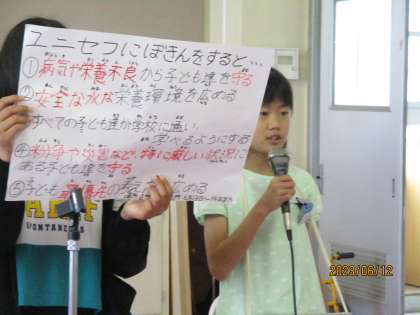 ユニセフにぼきんをすると…
①病気や栄養不良から子ども達を守る
②安全な水な栄養環境を広める
すべての子ども達が学校に通い、
学べるようにする
④紛争や災害など、特に厳しい状況に
ある子ども達を守る
⑤子ども
広める
SPONTANEOUS
2023/06/12